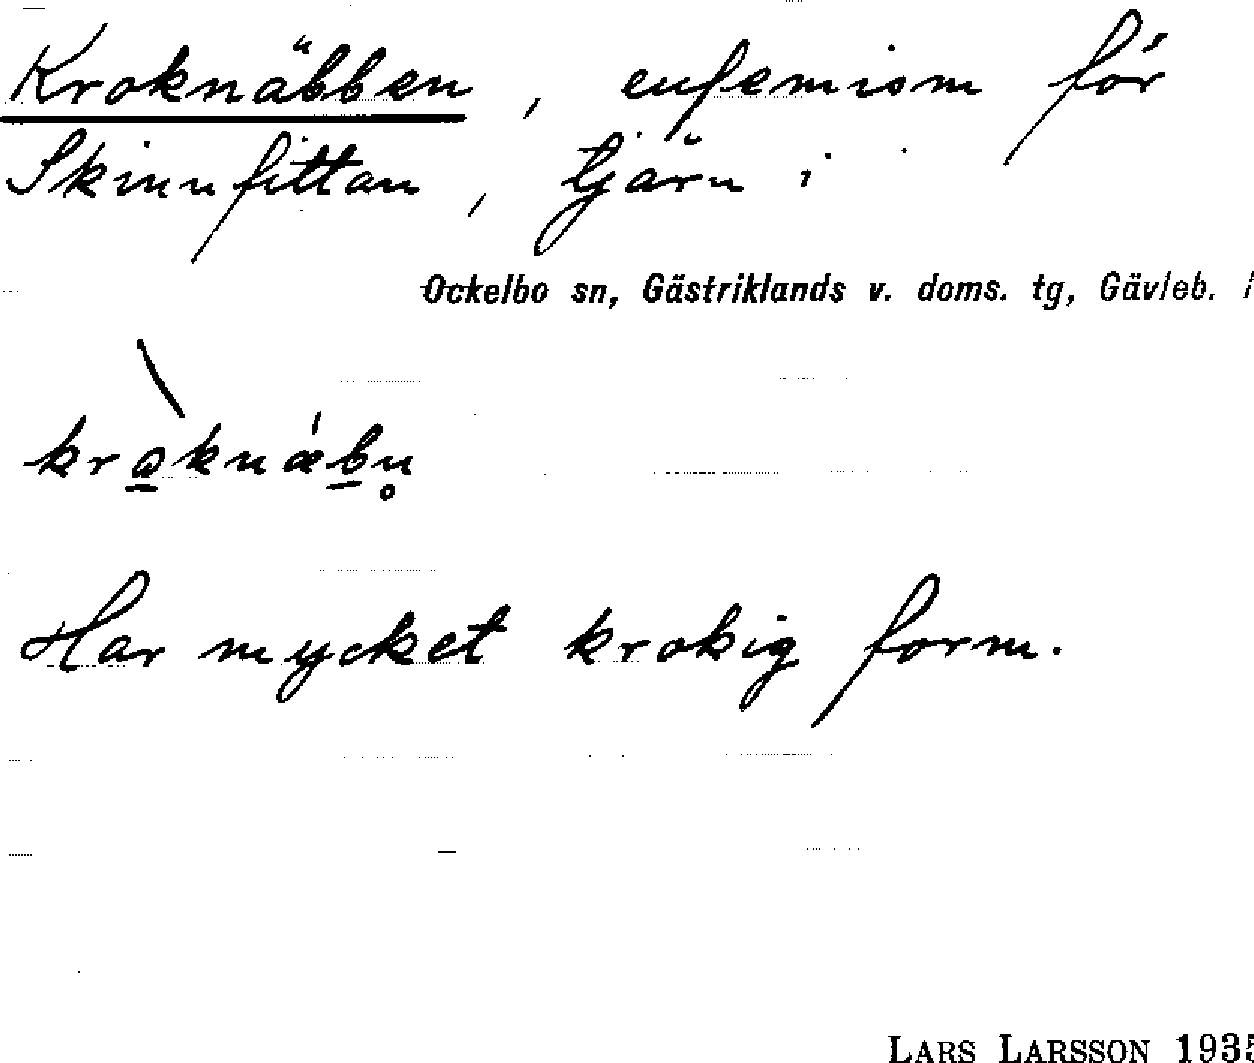 Kroknäbben, eufemism för
Skinnfittan, tjärn i
Ockelbo sn, Gästriklands v. doms. tg, Gävleb. l
kròknǽbn̥
Har mycket krokig form.
LARS LARSSON 1935